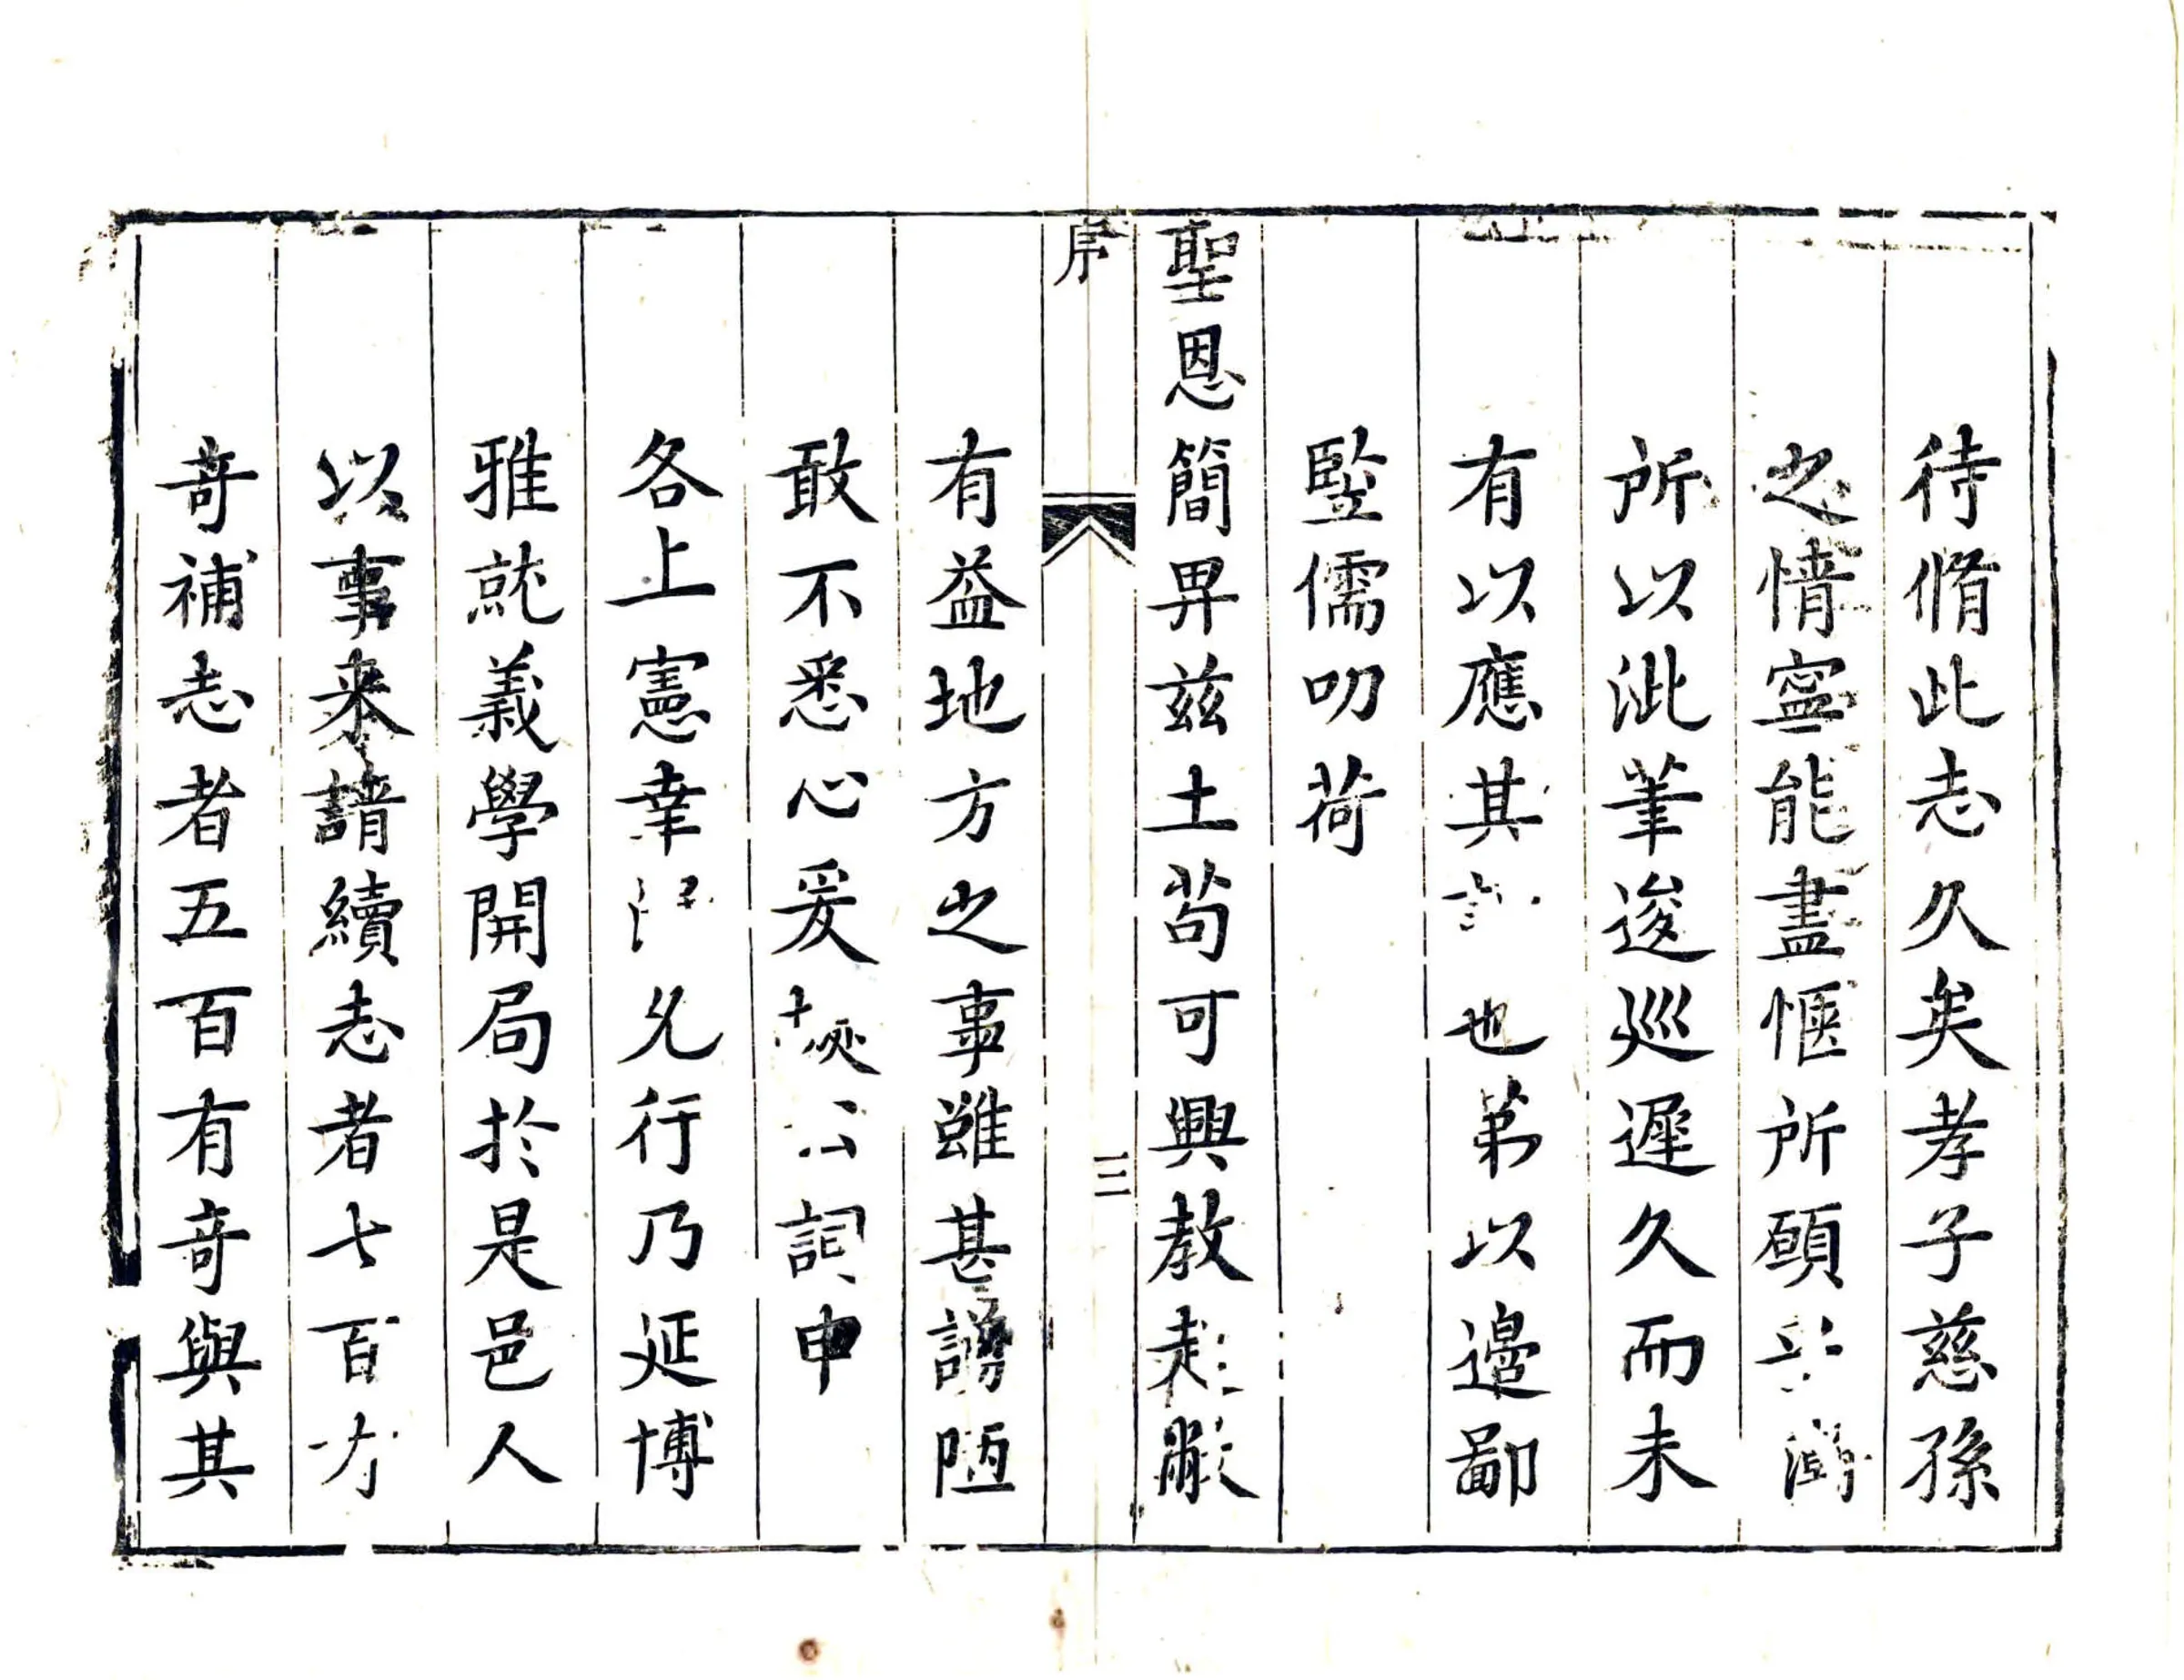 待脩此志久矣孝子慈孫
之情寧能盡愜所頋
所以泚筆逡巡遲久而未
有以應其 也苐以邉鄙
竪儒叨荷
聖恩簡畀兹土苟可興教起敝
序
三
有益地方之事雖甚謭陋
敢不悉心爰 公詞申
各上憲幸 允行乃延博
雅就義學開局於是邑人
以事来請續志者七百有
奇補志者五百有奇與其